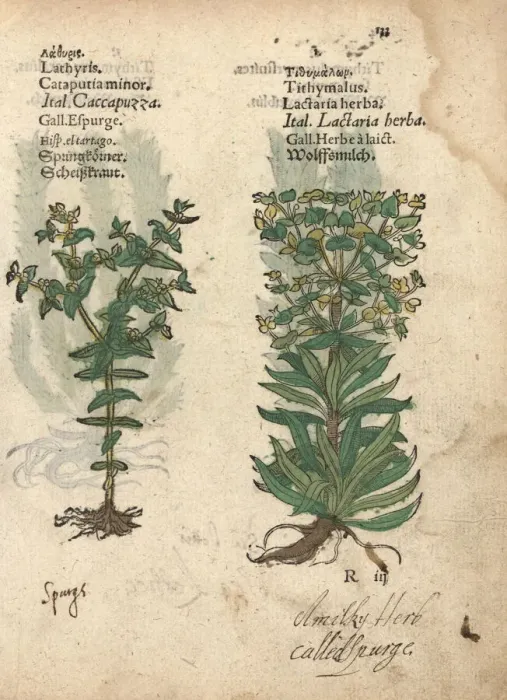 Λάθυρις.
Lathyris.
Cataputia minor.
Ital. Caccapuzza.
Gall. Eſpurge.
Hiſp. el tartago.
Spungkörner.
Scheißkraut.
Τιθυμάλωρ.
Tithymalus.
Lactaria herba.
Ital. Lactaria herba.
Gall. Herbe à laict.
Wolffsmilch.
R iij
Spurge
A milky Herb
called Spurge.